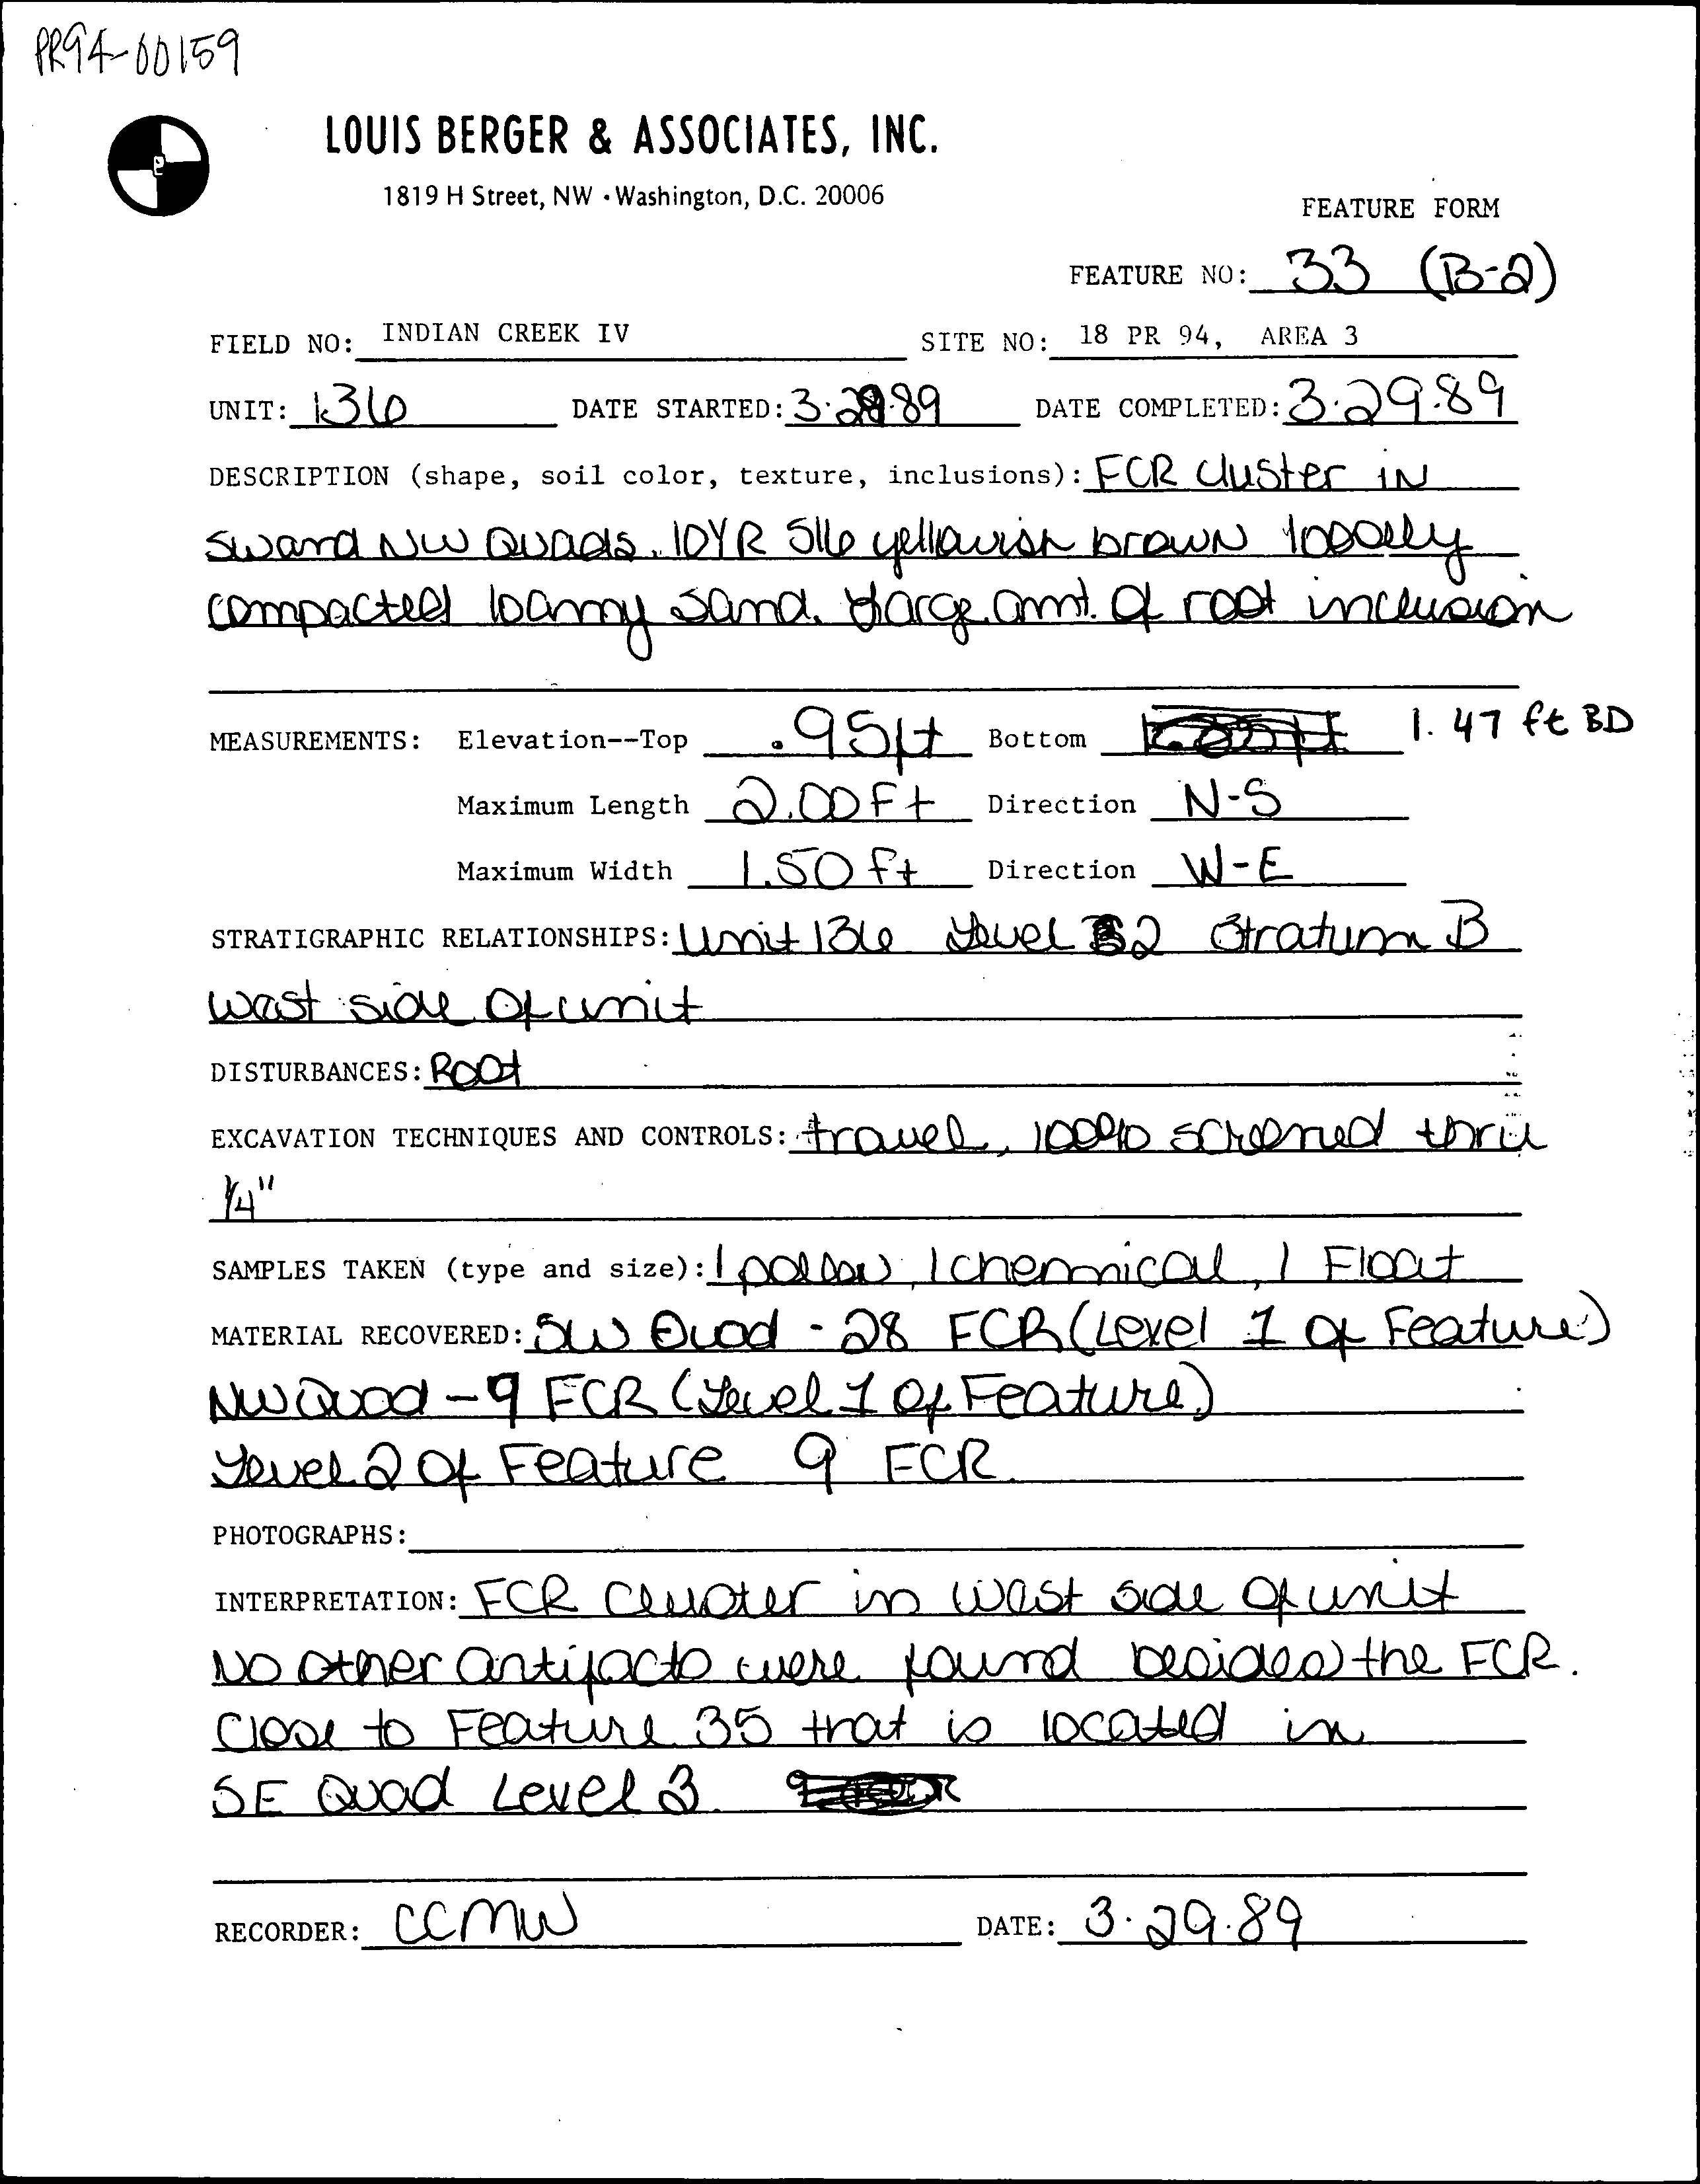 PR94-00159
LOUIS BERGER & ASSOCIATES, INC.
1819 H Street, NW · Washington, D.C. 20006
FEATURE FORM
FEATURE NO: 33 (B-2)
FIELD NO: INDIAN CREEK IV SITE NO: 18 PR 94, AREA 3
UNIT: 136 DATE STARTED: 3·29·89 DATE COMPLETED: 3·29·89
DESCRIPTION (shape, soil color, texture, inclusions): FCR cluster in
SW and NW Quads. 10YR 5/6 yellowish brown loosely
compacted loamy sand. Large amt. of root inclusion
MEASUREMENTS: Elevation--Top .95ft Bottom 1.47 ft BD
Maximum Length 2.00 Ft Direction N-S
Maximum Width 1.50 Ft Direction W-E
STRATIGRAPHIC RELATIONSHIPS: Unit 136 Level 2 Stratum B
west side of unit
DISTURBANCES: Root
EXCAVATION TECHNIQUES AND CONTROLS: trowel, 100% screened thru
1/4"
SAMPLES TAKEN (type and size): 1 pollen, 1 chemical, 1 Float
MATERIAL RECOVERED: SW Quad - 28 FCR (Level 1 of Feature)
NW Quad - 9 FCR (Level 1 of Feature)
Level 2 of Feature 9 FCR.
PHOTOGRAPHS:
INTERPRETATION: FCR cluster in west side of unit
No other artifacts were found besides the FCR.
Close to Feature 35 that is located in
SE Quad Level 3.
RECORDER: CCMW DATE: 3·29·89